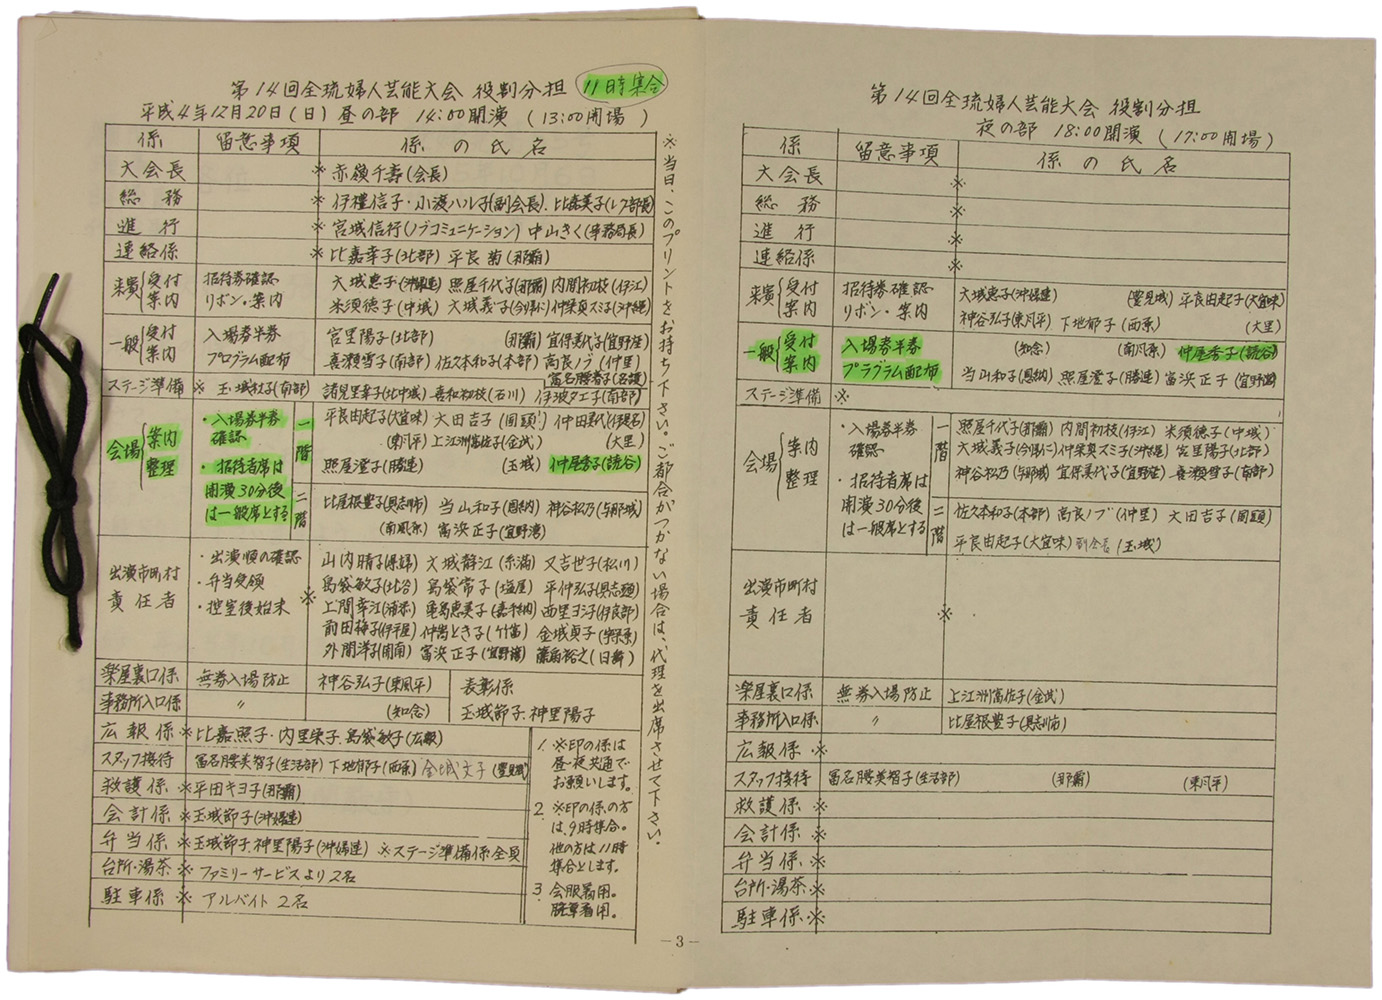 第14回全琉婦人芸能大会 役割分担 11時集合
平成4年12月20日(日)昼の部 14:00開演 (13:00開場)
係 留意事項 係の氏名
大会長 ※ 赤嶺千寿(会長)
総務 ※ 伊禮信子・小渡ハル子(副会長)、比嘉美子(レク部長)
進行 ※ 宮城信行(ノブコミュニケーション) 中山きく(事務局長)
連絡係 ※ 比嘉幸子(北部) 平良菊(那覇)
来賓 受付 招待券確認 大城恵子(沖婦連) 照屋千代子(那覇) 内間初枝(伊江)
案内 リボン・案内 米須徳子(中城) 大城義子(今帰仁) 仲栄真スミ子(沖縄)
一般 受付 入場券半券 宮里陽子(北部) (那覇) 宜保美代子(宜野座)
案内 プログラム配布 喜瀬雪子(南部) 佐久本和子(本部) 高良ノブ(仲里)
富名腰春子(名護)
ステージ準備 ※ 玉城社子(南部) 諸見里幸子(北中城) 喜和初枝(石川) 伊波タエ子(南部)
会場 案内 整理
・入場券半券
確認
・招待者席は
開演30分後
は一般席とする
一階
平良由起子(大宜味) 大田吉子(国頭) 仲田美代(伊是名)
(東風平) 上江洲富佐子(金武) (大里)
照屋澄子(勝連) (玉城) 仲屋秀子(読谷)
二階
比屋根豊子(具志川市) 当山和子(恩納) 神谷松乃(与那城)
(南風原) 富浜正子(宜野湾)
出演市町村
責任者
・出演順の確認
・弁当受領
・控室後始末
※
山内晴子 大城静江(糸満) 又吉世子(松川)
島袋敏子(北谷) 島袋常子(塩屋) 平仲弘子(具志頭)
上間幸江(浦添) 亀島恵美子(嘉手納) 西里ヨ子(伊良部)
前田梅子(伊平屋) 仲嵩とき子(竹富) 金城貞子(与那原)
外間洋子(南) 富浜正子(宜野湾) 裕之(日舞)
楽屋裏口係 無券入場防止 神谷弘子(東風平)
事務所入口係 〃 (知念)
表彰係
玉城節子・神里陽子
広報係 ※ 比嘉照子・内里栄子、島袋敏子(広報)
スタッフ接待 富名腰美智子(生活部) 下地郁子(西原) 金城文子(豊見城)
救護係 ※ 平田キヨ子(那覇)
会計係 ※ 玉城節子(沖婦連)
弁当係 ※ 玉城節子、神里陽子(沖婦連) ※ステージ準備係全員
台所・湯茶 ※ ファミリーサービスより2名
駐車係 ※ アルバイト2名
1. ※印の係は
昼・夜共通で
お願いします。
2. ※印の係の方
は、9時集合。
他の方は11時
集合とします。
3. 会服着用。
腕章着用。
※当日、このプリントをお持ち下さい。ご都合がつかない場合は、代理を出席させて下さい。
－3－
第14回全琉婦人芸能大会 役割分担
夜の部 18:00開演 (17:00開場)
係 留意事項 係の氏名
大会長 ※
総務 ※
進行 ※
連絡係 ※
来賓 受付 招待券確認 大城恵子(沖婦連) (豊見城) 平良由起子(大宜味)
案内 リボン・案内 神谷弘子(東風平) 下地郁子(西原) (大里)
一般 受付 入場券半券 (知念) (南風原) 仲屋秀子(読谷)
案内 プラグラム配布 当山和子(恩納) 照屋澄子(勝連) 富浜正子(宜野湾)
ステージ準備 ※
会場 案内 整理
・入場券半券
確認
・招待者席は
開演30分後
は一般席とする
一階
照屋千代子(那覇) 内間初枝(伊江) 米須徳子(中城)
大城義子(今帰仁) 仲栄真スミ子(沖縄) 宮里陽子(北部)
神谷松乃(与那城) 宜保美代子(宜野座) 喜瀬雪子(南部)
二階
佐久本和子(本部) 高良ノブ(仲里) 大田吉子(国頭)
平良由起子(大宜味) 副会長(玉城)
出演市町村
責任者 ※
楽屋裏口係 無券入場防止 上江洲富佐子(金武)
事務所入口係 〃 比屋根豊子(具志川市)
広報係 ※
スタッフ接待 富名腰美智子(生活部) (那覇) (東風平)
救護係 ※
会計係 ※
弁当係 ※
台所・湯茶 ※
駐車係 ※